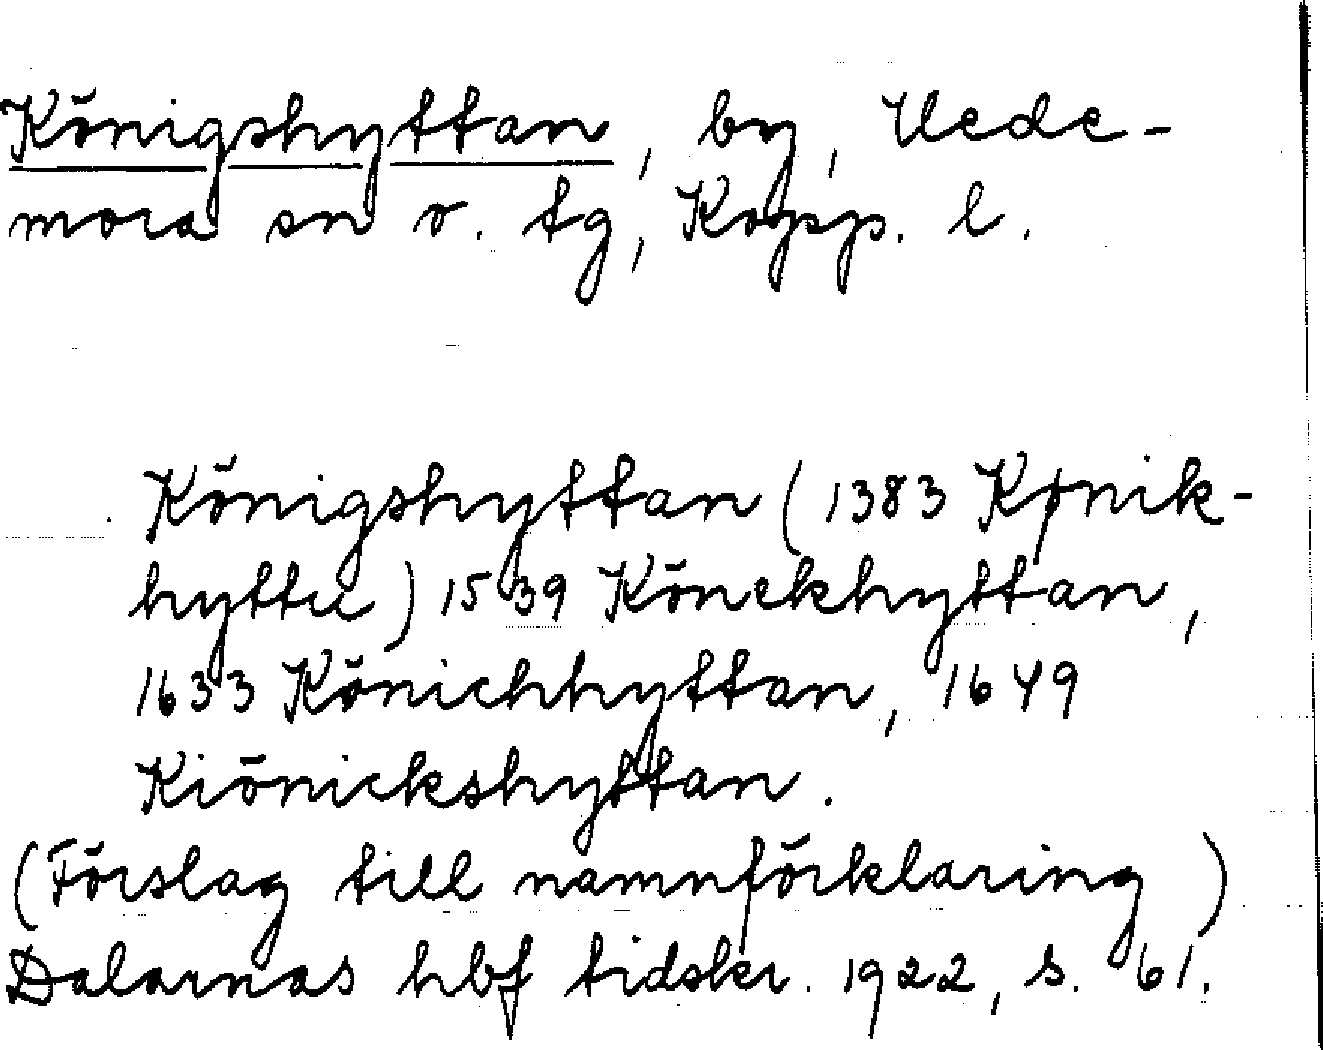 Königshyttan, by, Hede-
mora sn o. tg, Kopp. l.
Königshyttan (1383 Kønik-
hytte) 1539 Könekhyttan,
1633 Könichhyttan, 1649
Kiönickshyttan.
(Förslag till namnförklaring)
Dalarnas hbf tidskr. 1922, s. 61.